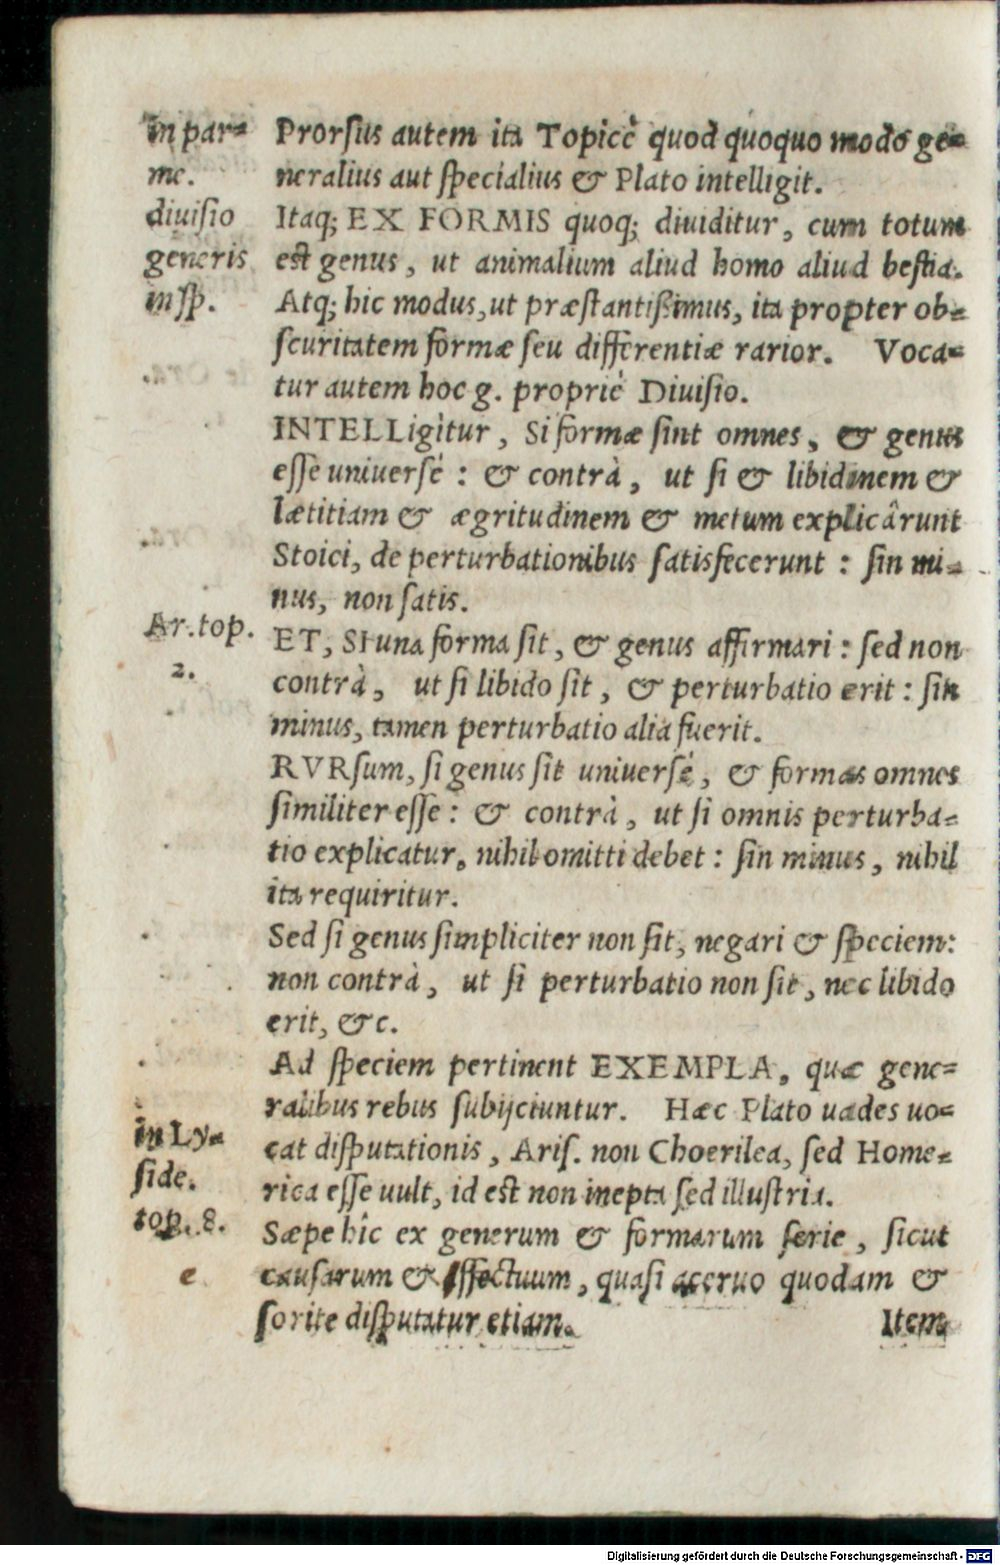 in par=
me.
diuisio
generis
in sp.
Prorsus autem ita Topicè quod quoquo modo ge=
neralius aut specialius & Plato intelligit.
Itaq; EX FORMIS quoq; diuiditur, cum totum
est genus, ut animalium aliud homo aliud bestia.
Atq; hic modus, ut præstantißimus, ita propter ob=
scuritatem formæ seu differentiæ rarior. Voca=
tur autem hoc g. propriè Diuisio.
INTELLigitur, Si formæ sint omnes, & genus
esse uniuersè : & contrà, ut si & libidinem &
lætitiam & ægritudinem & metum explicârunt
Stoici, de perturbationibus satisfecerunt : sin mi=
nus, non satis.
Ar. top.
2.
ET, SI una forma sit, & genus affirmari : sed non
contrà, ut si libido sit, & perturbatio erit : sin
minus, tamen perturbatio alia fuerit.
RVRsum, si genus sit uniuersè, & formas omnes
similiter esse : & contrà, ut si omnis perturba=
tio explicatur, nihil omitti debet : sin minus, nihil
ita requiritur.
Sed si genus simpliciter non sit, negari & speciem:
non contrà, ut si perturbatio non sit, nec libido
erit, &c.
Ad speciem pertinent EXEMPLA, quæ gene=
ralibus rebus subijciuntur. Hæc Plato uades uo=
in Ly=
side.
top. 8.
cat disputationis, Aris. non Choerilea, sed Home=
rica esse uult, id est non inepta sed illustria.
Sæpe hîc ex generum & formarum serie, sicut
e
causarum & effectuum, quasi aceruo quodam &
sorite disputatur etiam.
Item
Digitalisierung gefördert durch die Deutsche Forschungsgemeinschaft - DFG